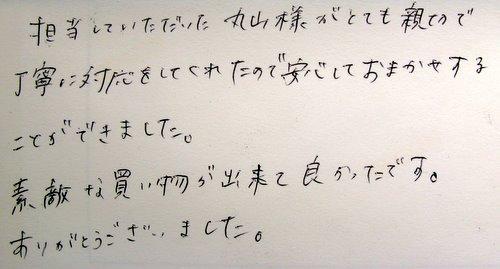 担当していただいた 丸山様がとても親せつで
丁寧に対応をしてくれたので安心しておまかせする
ことができました。
素敵な買い物が出来て良かったです。
ありがとうございました。